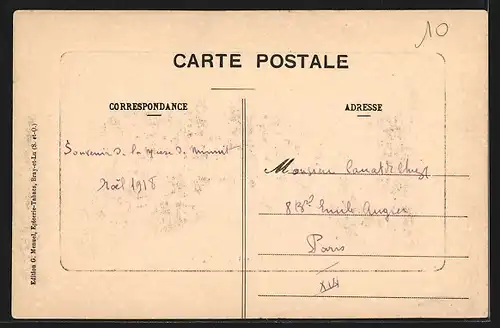 10
CARTE POSTALE
CORRESPONDANCE
ADRESSE
Souvenir de la messe de minuit
Noël 1918
Monsieur
8 Bd Emile Augier
Paris
XVI
Edition G. Menuel, Epicerie-Tabacs, Bray-et-Lu (S.-et-O.)